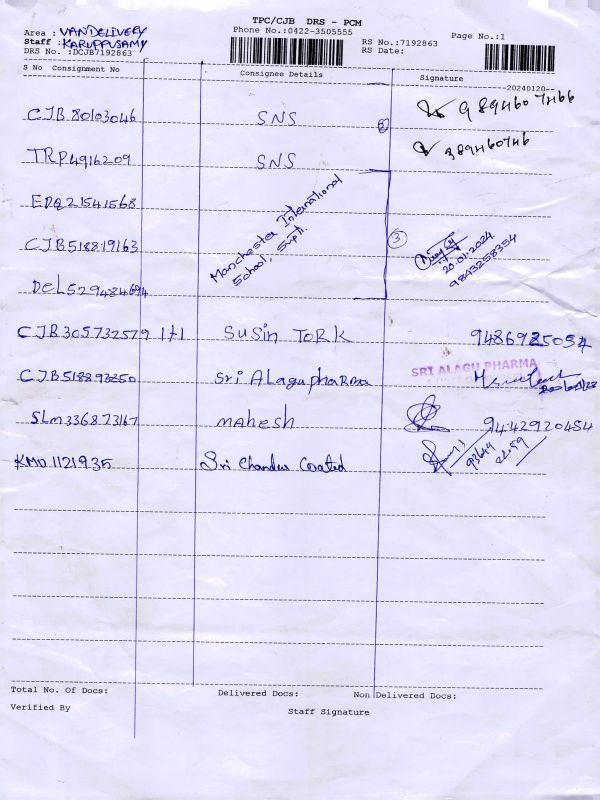 TPC/CJB DRS - PCM
Area : VAN DELIVERY
Phone No.:0422-3505555
Page No.:1
Staff : KARUPPUSAMY
RS No.:7192863
DRS No. :DCJB7192863
RS Date:
S No Consignment No Consignee Details Signature
--20240120--
CJB 80103046 SNS
TRP4916209 SNS
EDQ21541568
CJB518819163
Manchester International
School, Svptl.
3
20.01.2024
9843258354
DEL529484694
CJB305732579 1+1 SUSIN TORK
SRI ALAGU PHARMA
CJB518893250 Sri Alagu phaRma
SLM336873167 MAhesh 9442920454
KMD1121935 Sri Chandra Coated
Total No. Of Docs: Delivered Docs: Non Delivered Docs:
Verified By Staff Signature